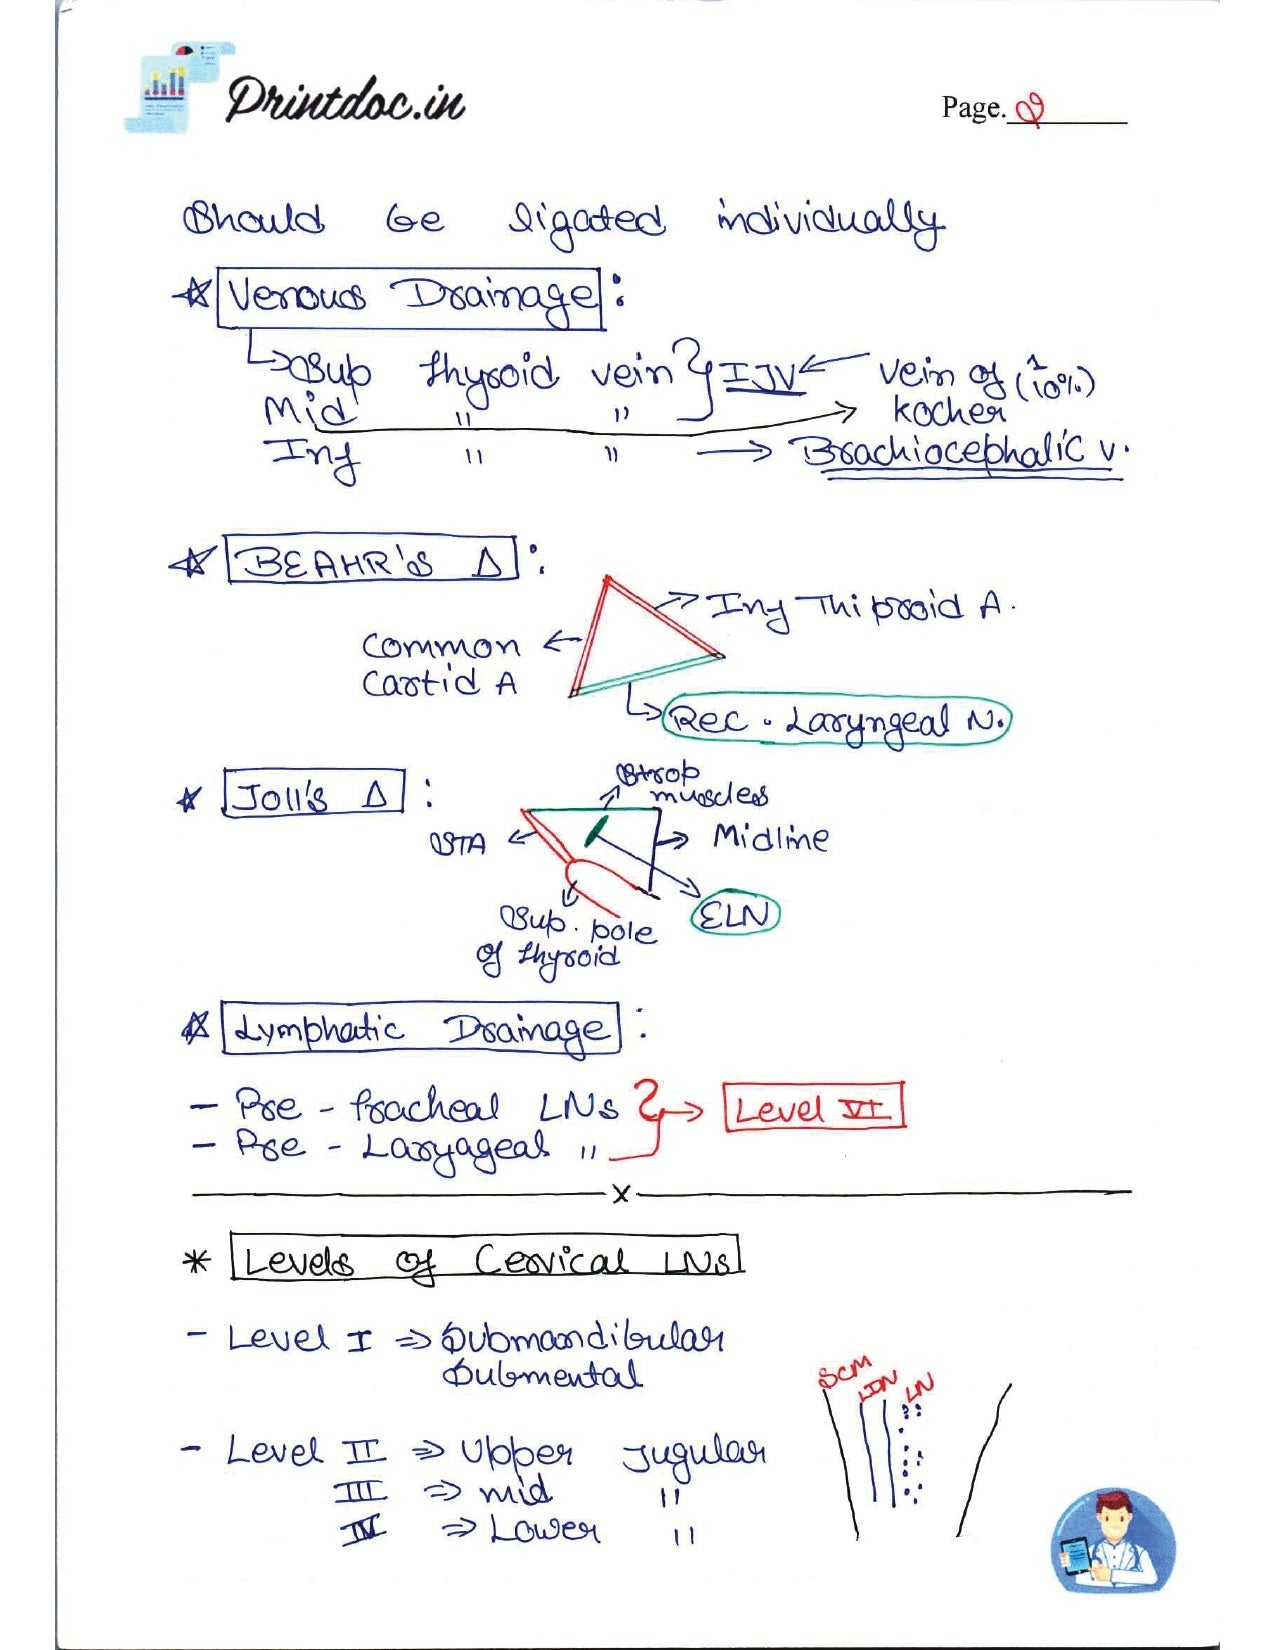 Printdoc.in
Page. 02
Should be ligated individually
* Venous Drainage :
Sup thyroid vein } IJV ← Vein of (↑10%)
Mid " " → Kocher
Inf " " → Brachiocephalic v.
* BEAHR's Δ :
→ Inf Thiproid A.
Common
Cartid A
→ Rec. Laryngeal N.
* Joll's Δ :
Strop
muscles
STA
→ Midline
ELN
Sup. pole
of thyroid
* Lymphatic Drainage :
- Pre - tracheal LNs } → Level VI
- Pre - Laryageal "
x
* Levels of Cervical LNs
- Level I ⇒ Submandibular
Submental
SCM
LN
- Level II ⇒ Upper Jugular
III ⇒ mid "
IV ⇒ Lower "